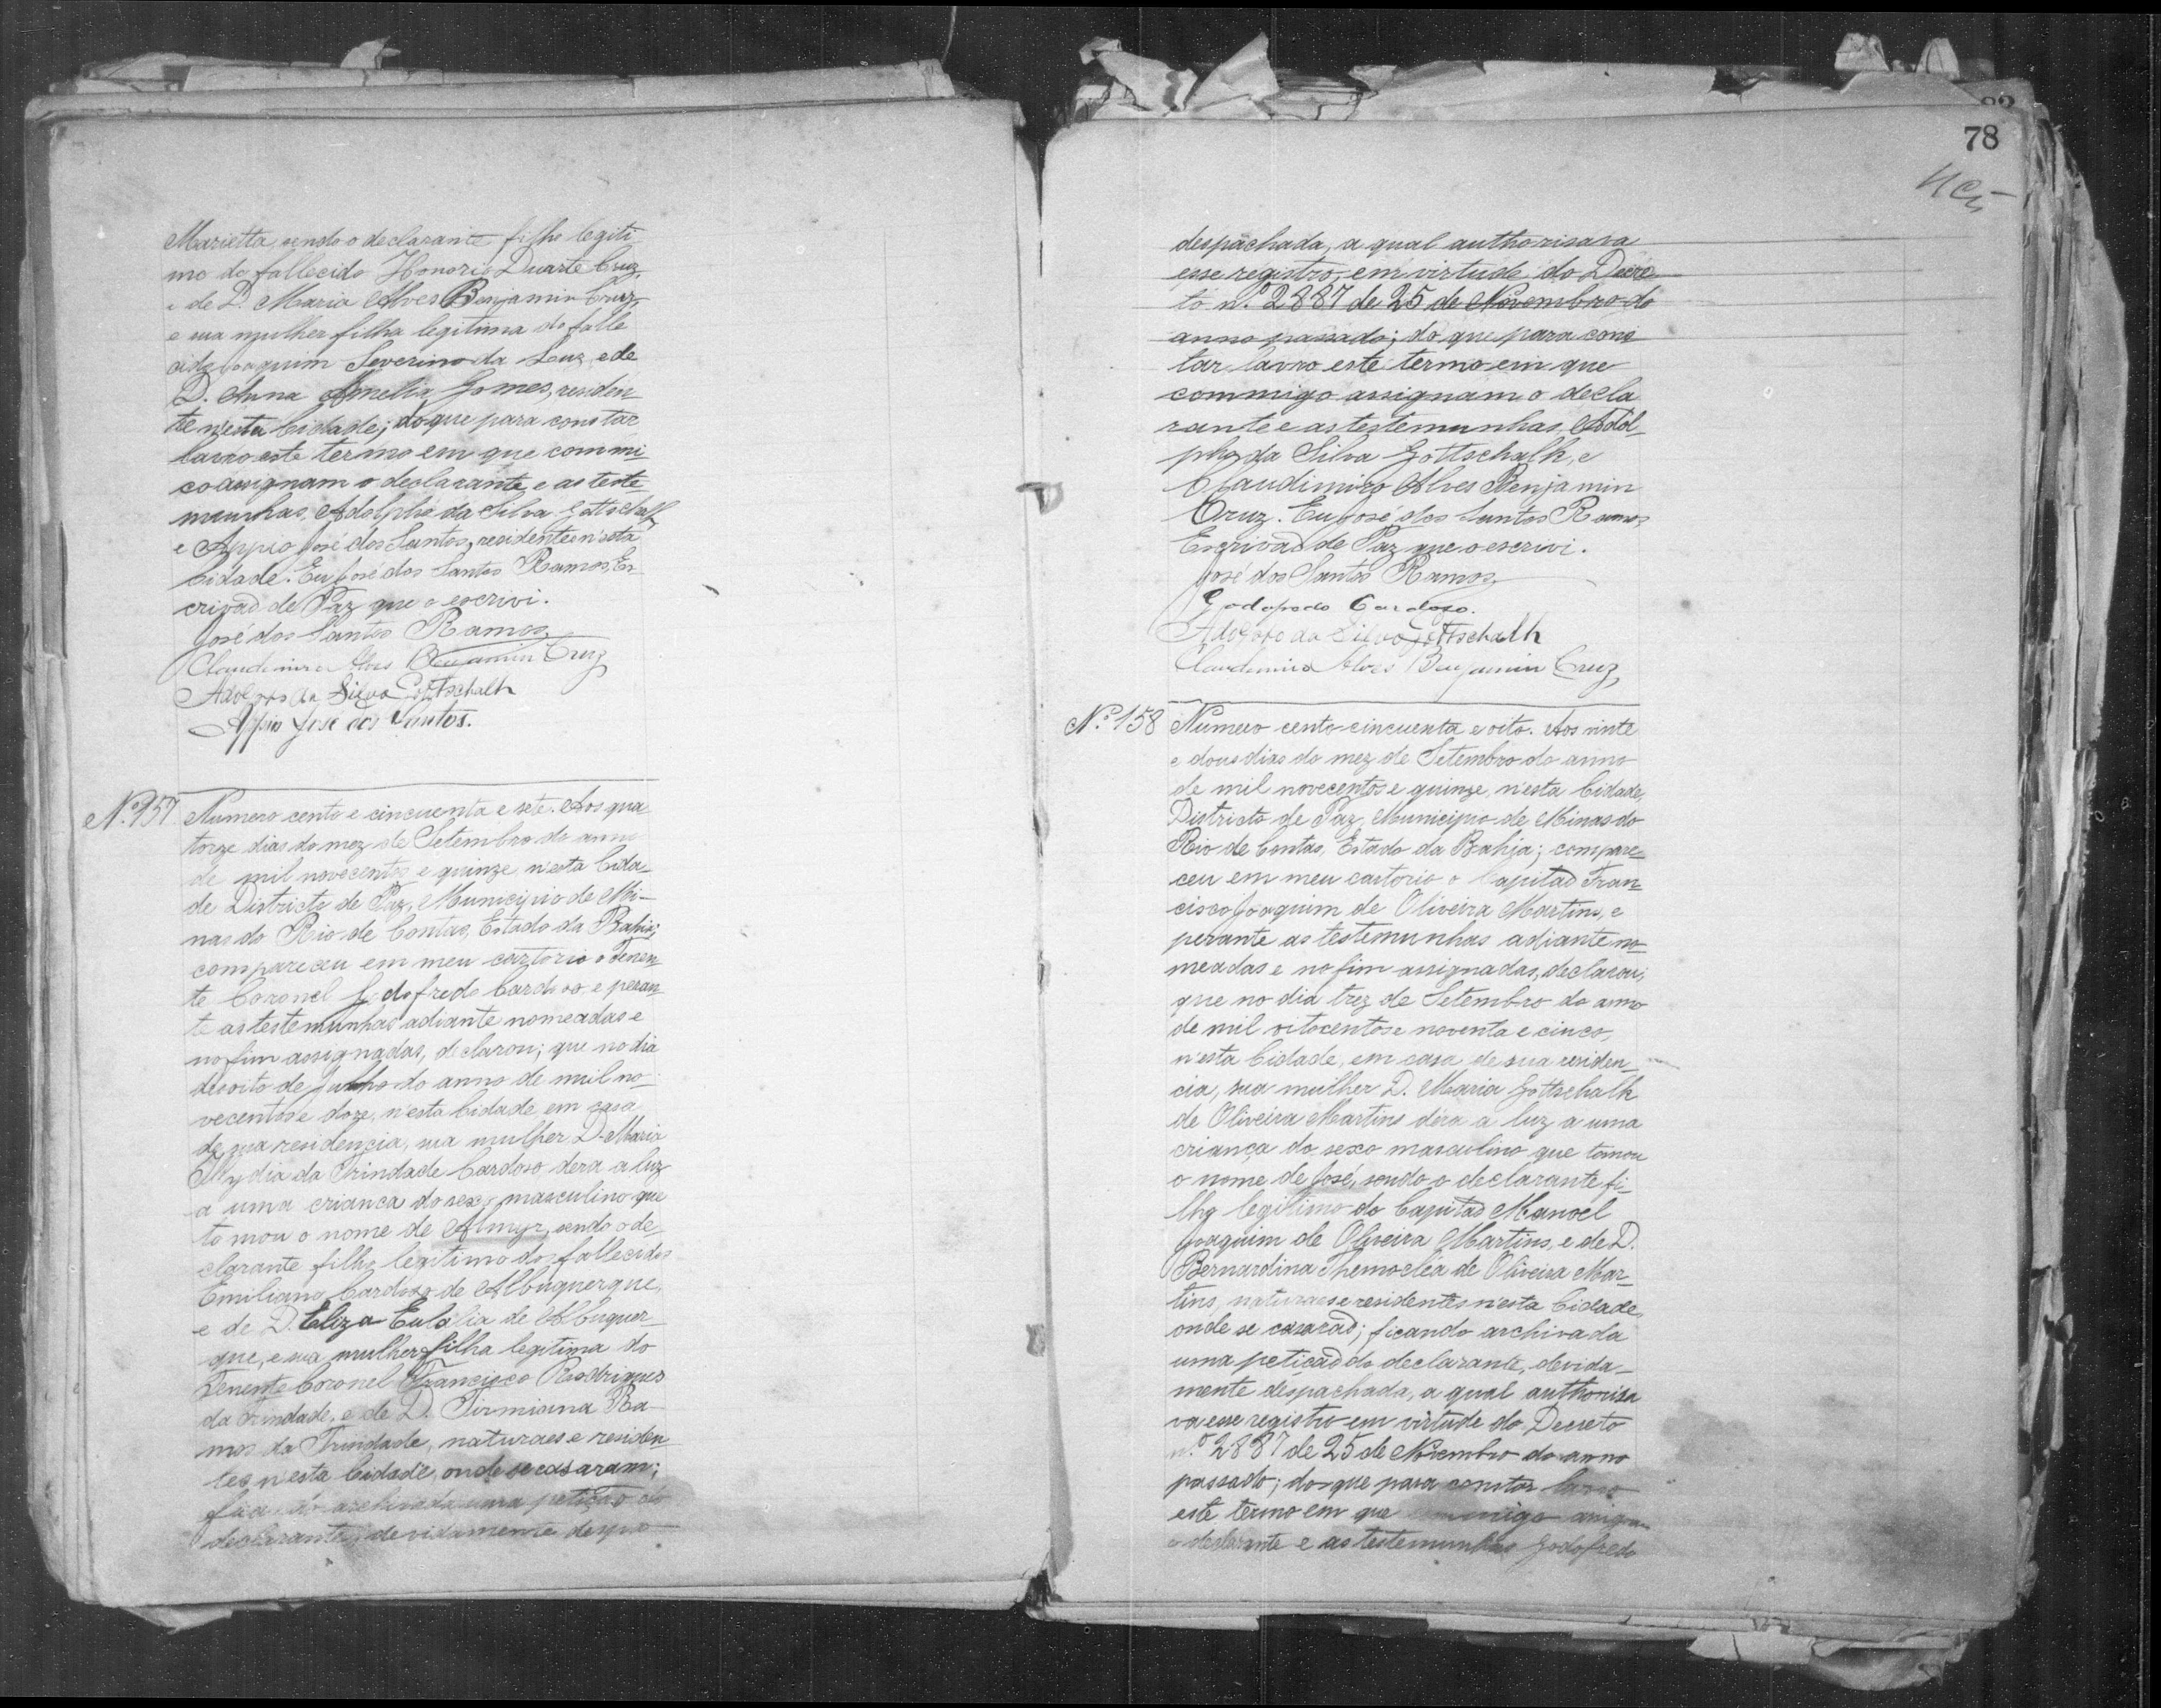 Marietta, sendo o declarante filho legiti
mo do fallecido Honorio Duarte Cruz,
e de D. Maria Alves Benjamin Cruz,
e sua mulher filha legitima do falle
cido Joaquim Severino da Luz, e de
D. Anna Amelia Gomes, residen
te n'esta Cidade; do que para constar
lavro este termo em que commi
co assignam o declarante e as teste
munhas, Adolpho da Silva Gottschalk
e Appio José dos Santos, residentes n'esta
Cidade. Eu José dos Santos Ramos, Es
crivaõ de Paz que o escrivi.
José dos Santos Ramos
Claudimiro Alves Benjamin Cruz
Adolpho da Silva Gottschalk
Appio José dos Santos.
Nº 157
Numero cento e cincuenta e sete. Aos qua
torze dias do mez de Setembro do anno
de mil novecentos e quinze n'esta Cida
de Districto de Paz, Municipio de Mi-
nas do Rio de Contas, Estado da Bahia;
compareceu em meu cartorio o Tenen
te Coronel Godofredo Cardoso e peran
te as testemunhas adiante nomeadas e
no fim assignadas, declarou; que no dia
desoito de Julho do anno de mil no-
vecentos e doze, n'esta Cidade em casa
de sua residencia, sua mulher D. Maria
da Trindade Cardoso dera a luz
a uma crianca do sexo masculino que
tomou o nome de Almyr, sendo o de-
clarante filho legitimo dos fallecidos
Emiliano Cardoso de Albuquerque,
e de D. Eliza Eulalia de Albuquer
que, e sua mulher filha legitima do
Tenente Coronel Francisco Rodrigues
da Trindade, e de D. Firmiana Ra
mos da Trindade, naturaes e residen
tes n'esta Cidade, onde se casaram;
ficando archivada uma petição do
declarante, devidamente despa
78
despachada, a qual authorisava
esse registro, em virtude do Decre
to nº 2887 de 25 de Novembro do
anno passado; do que para cons
tar lavro este termo em que
commigo assignam o decla
rante e as testemunhas, Adol
pho da Silva Gottschalk, e
Claudimiro Alves Benjamin
Cruz. Eu José dos Santos Ramos
Escrivaõ de Paz que o escrivi.
José dos Santos Ramos
Godofredo Cardoso.
Adolpho da Silva Gottschalk
Claudimiro Alves Benjamin Cruz
Nº 158
Numero cento cincuenta e oito. Aos vinte
e dous dias do mez de Setembro do anno
de mil novecentos e quinze, n'esta Cidade,
Districto de Paz, Municipio de Minas do
Rio de Contas, Estado da Bahia; compare
ceu em meu cartorio o Capitaõ Fran
cisco Joaquim de Oliveira Martins, e
perante as testemunhas adiante no
meadas e no fim assignadas, declarou,
que no dia trez de Setembro do anno
de mil oitocentos e noventa e cinco,
n'esta Cidade, em casa de sua residen
cia, sua mulher D. Maria Gottschalk
de Oliveira Martins dera a luz a uma
criança do sexo masculino que tomou
o nome de José, sendo o declarante fi
lho legitimo do Capitaõ Manoel
Joaquim de Oliveira Martins, e de D.
Bernardina Themocléa de Oliveira Mar
tins, naturaes e residentes n'esta Cidade,
onde se casaraõ; ficando archivada
uma petiçaõ do declarante, devida
mente despachada, a qual authorisa
va esse registro em virtude do Decreto
nº 2887 de 25 de Novembro do anno
passado; do que para constar lavro
este termo em que commigo assigna
o declarante e as testemunhas Godofredo